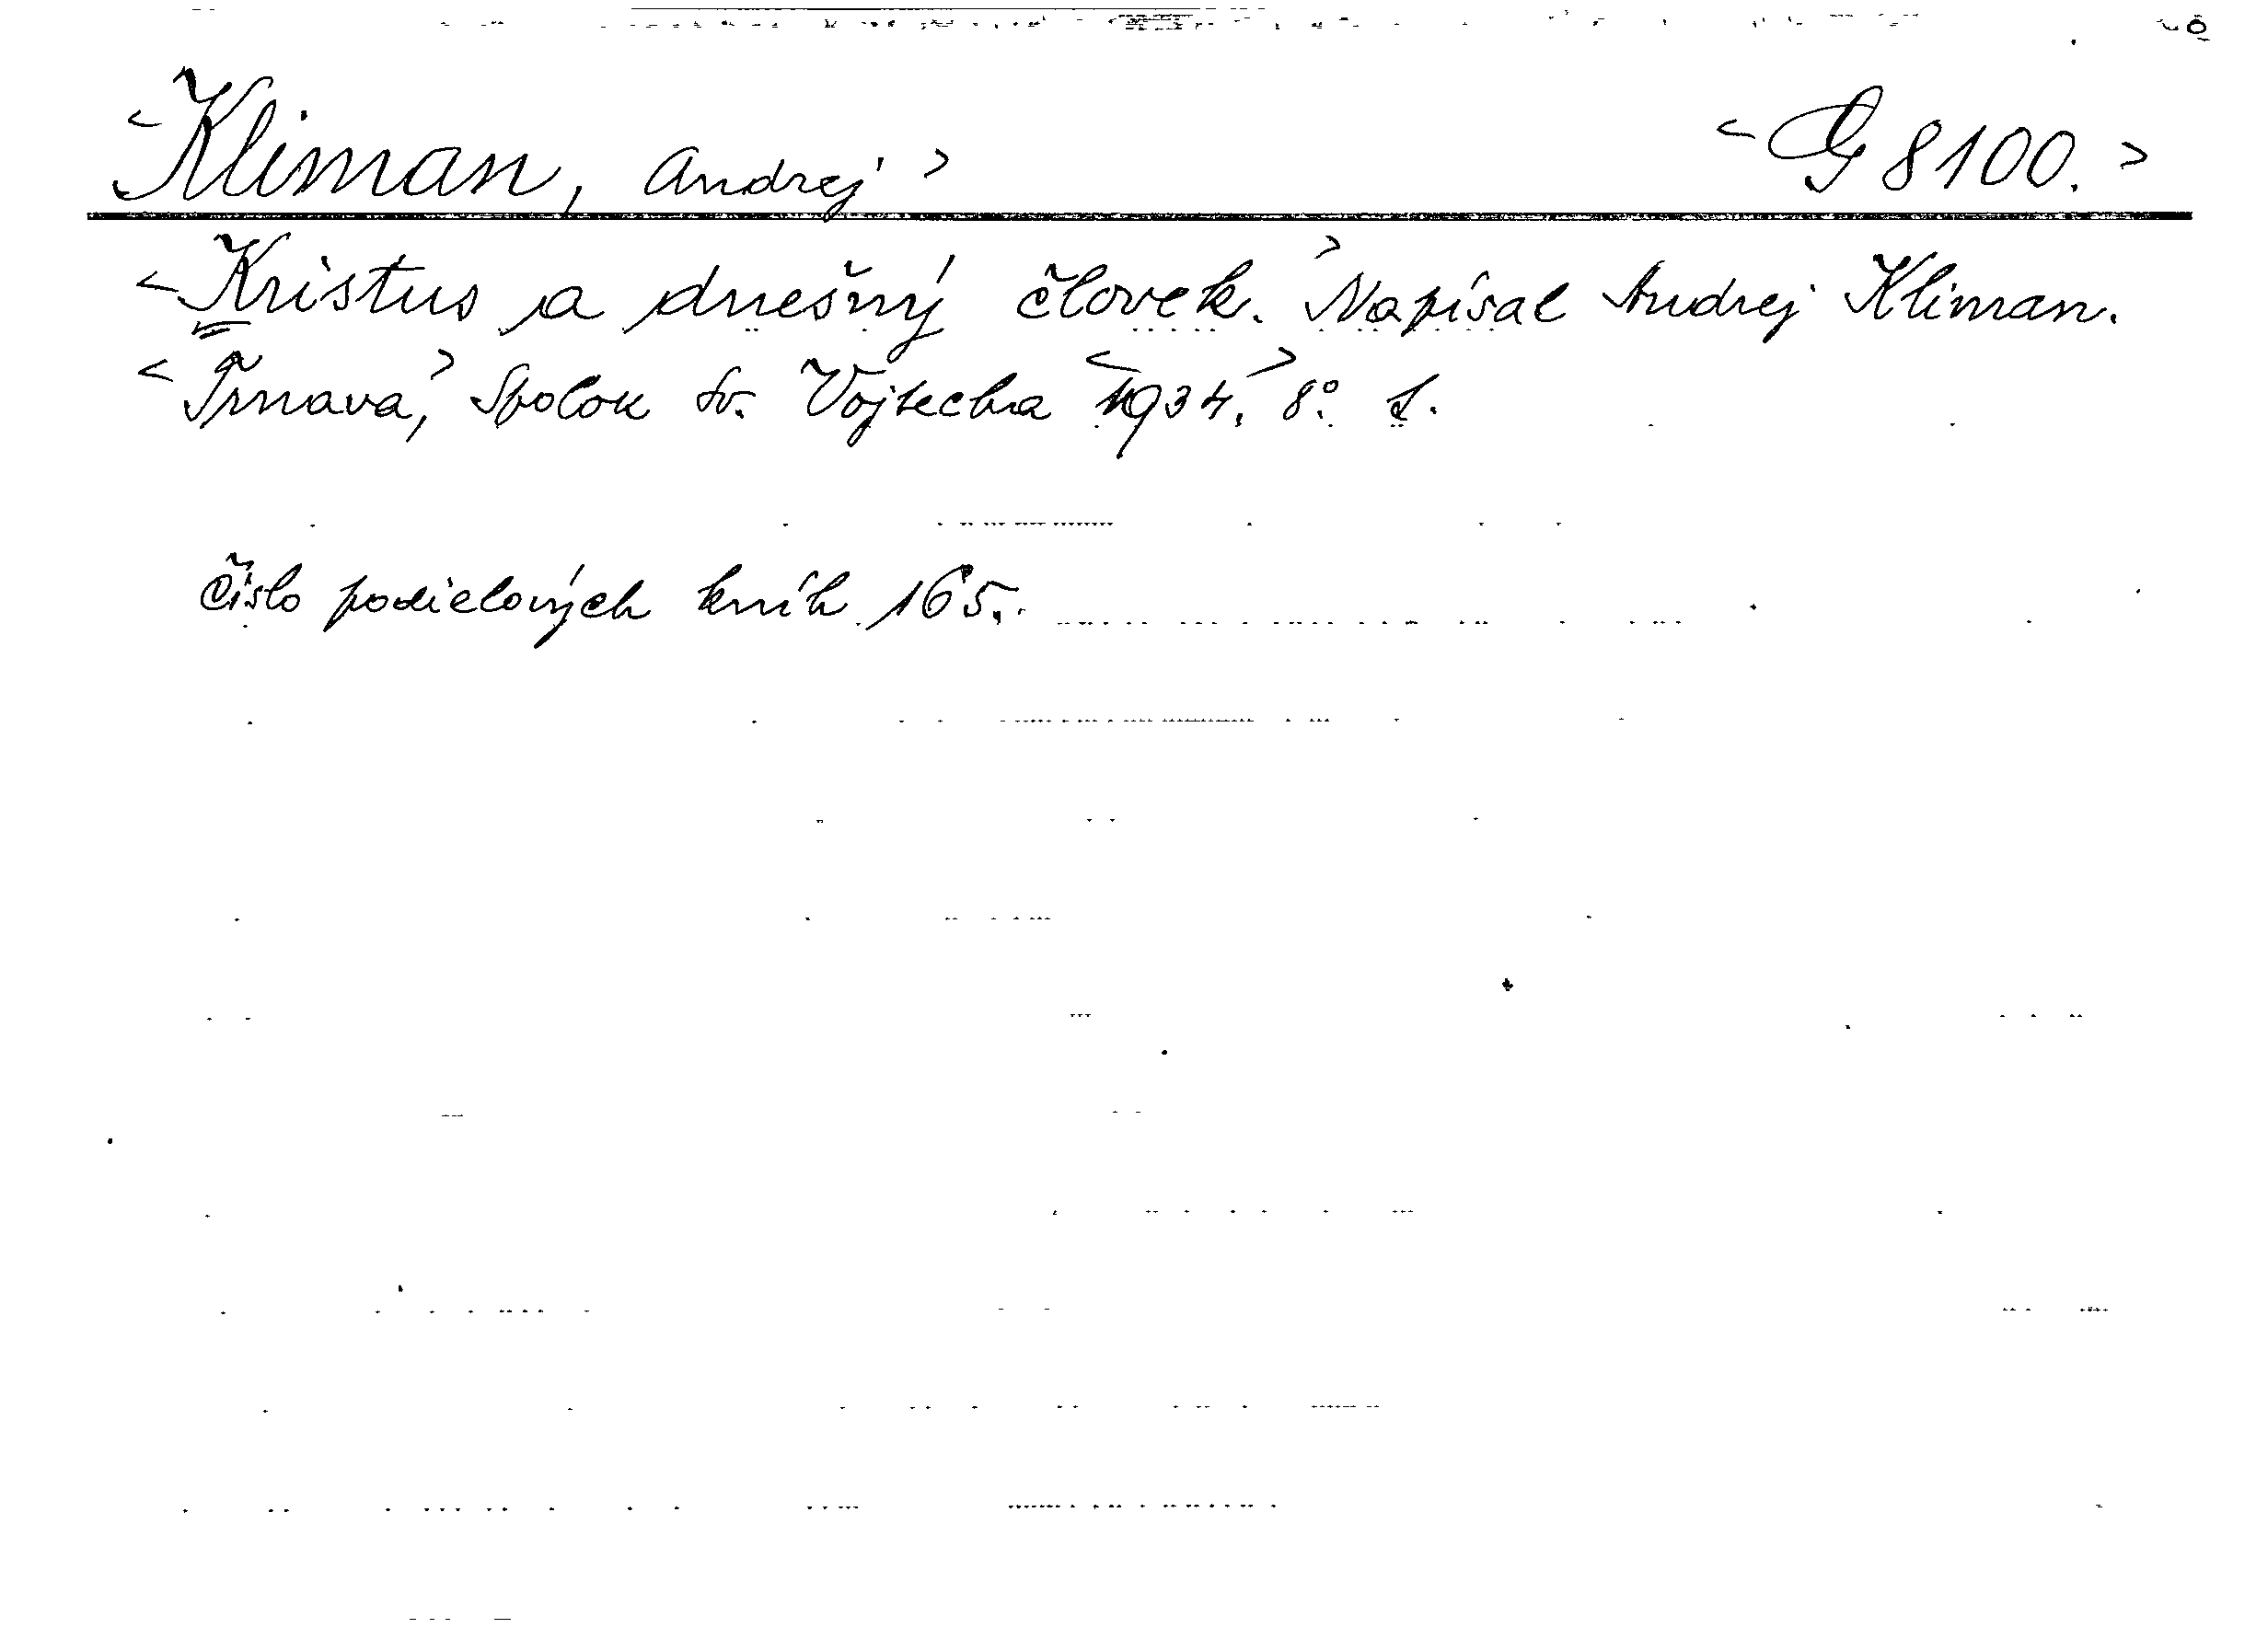 <Kliman, Andrej> <G 8100.>
<Kristus a dnešný človek.> Napísal Andrej Kliman.
<Trnava,> Spolok sv. Vojtecha <1934.> 8°. 1.
Číslo podielových kníh 165.